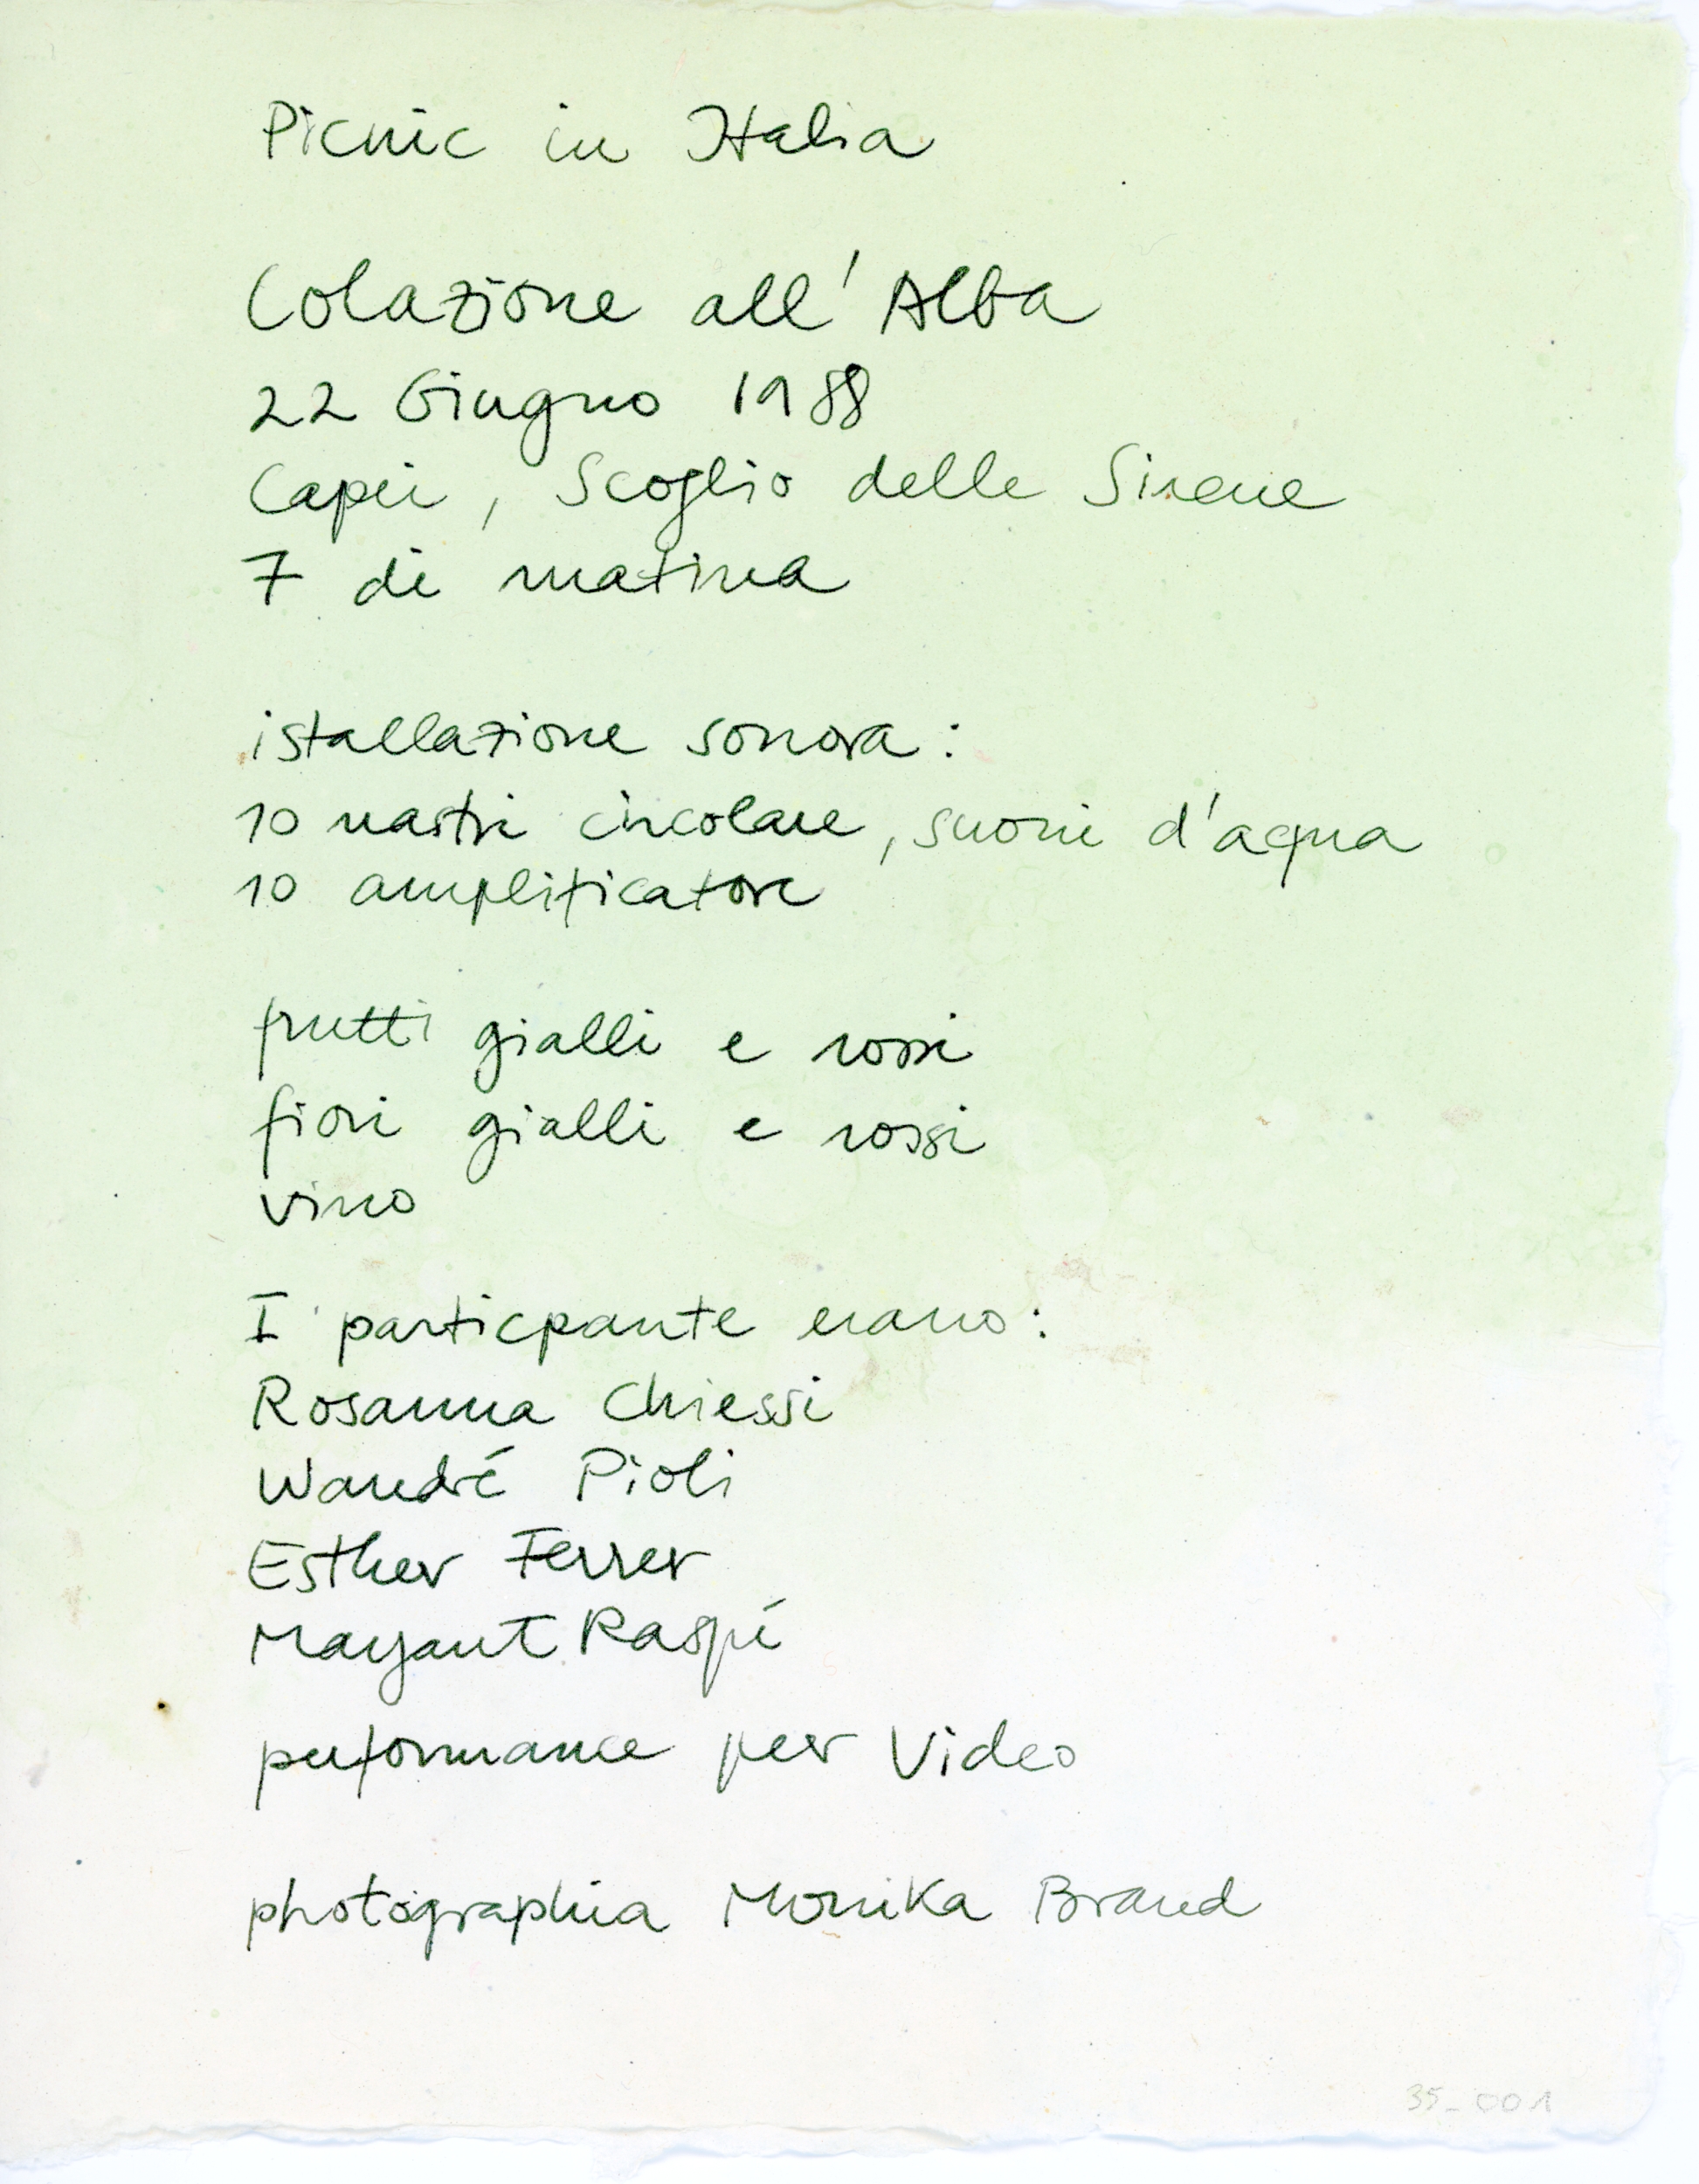 Picnic in Italia
Colazione all'Alba
22 Giugno 1988
Capri, Scoglio delle Sirene
7 di matina
istallazione sonora:
10 nastri circolare, suoni d'aqua
10 amplificatore
frutti gialli e rossi
fiori gialli e rossi
vino
I particpante erano:
Rosanna Chiessi
Wandré Pioli
Esther Ferrer
Maryant Raspé
performance per Video
photographia Monika Brand
35_001